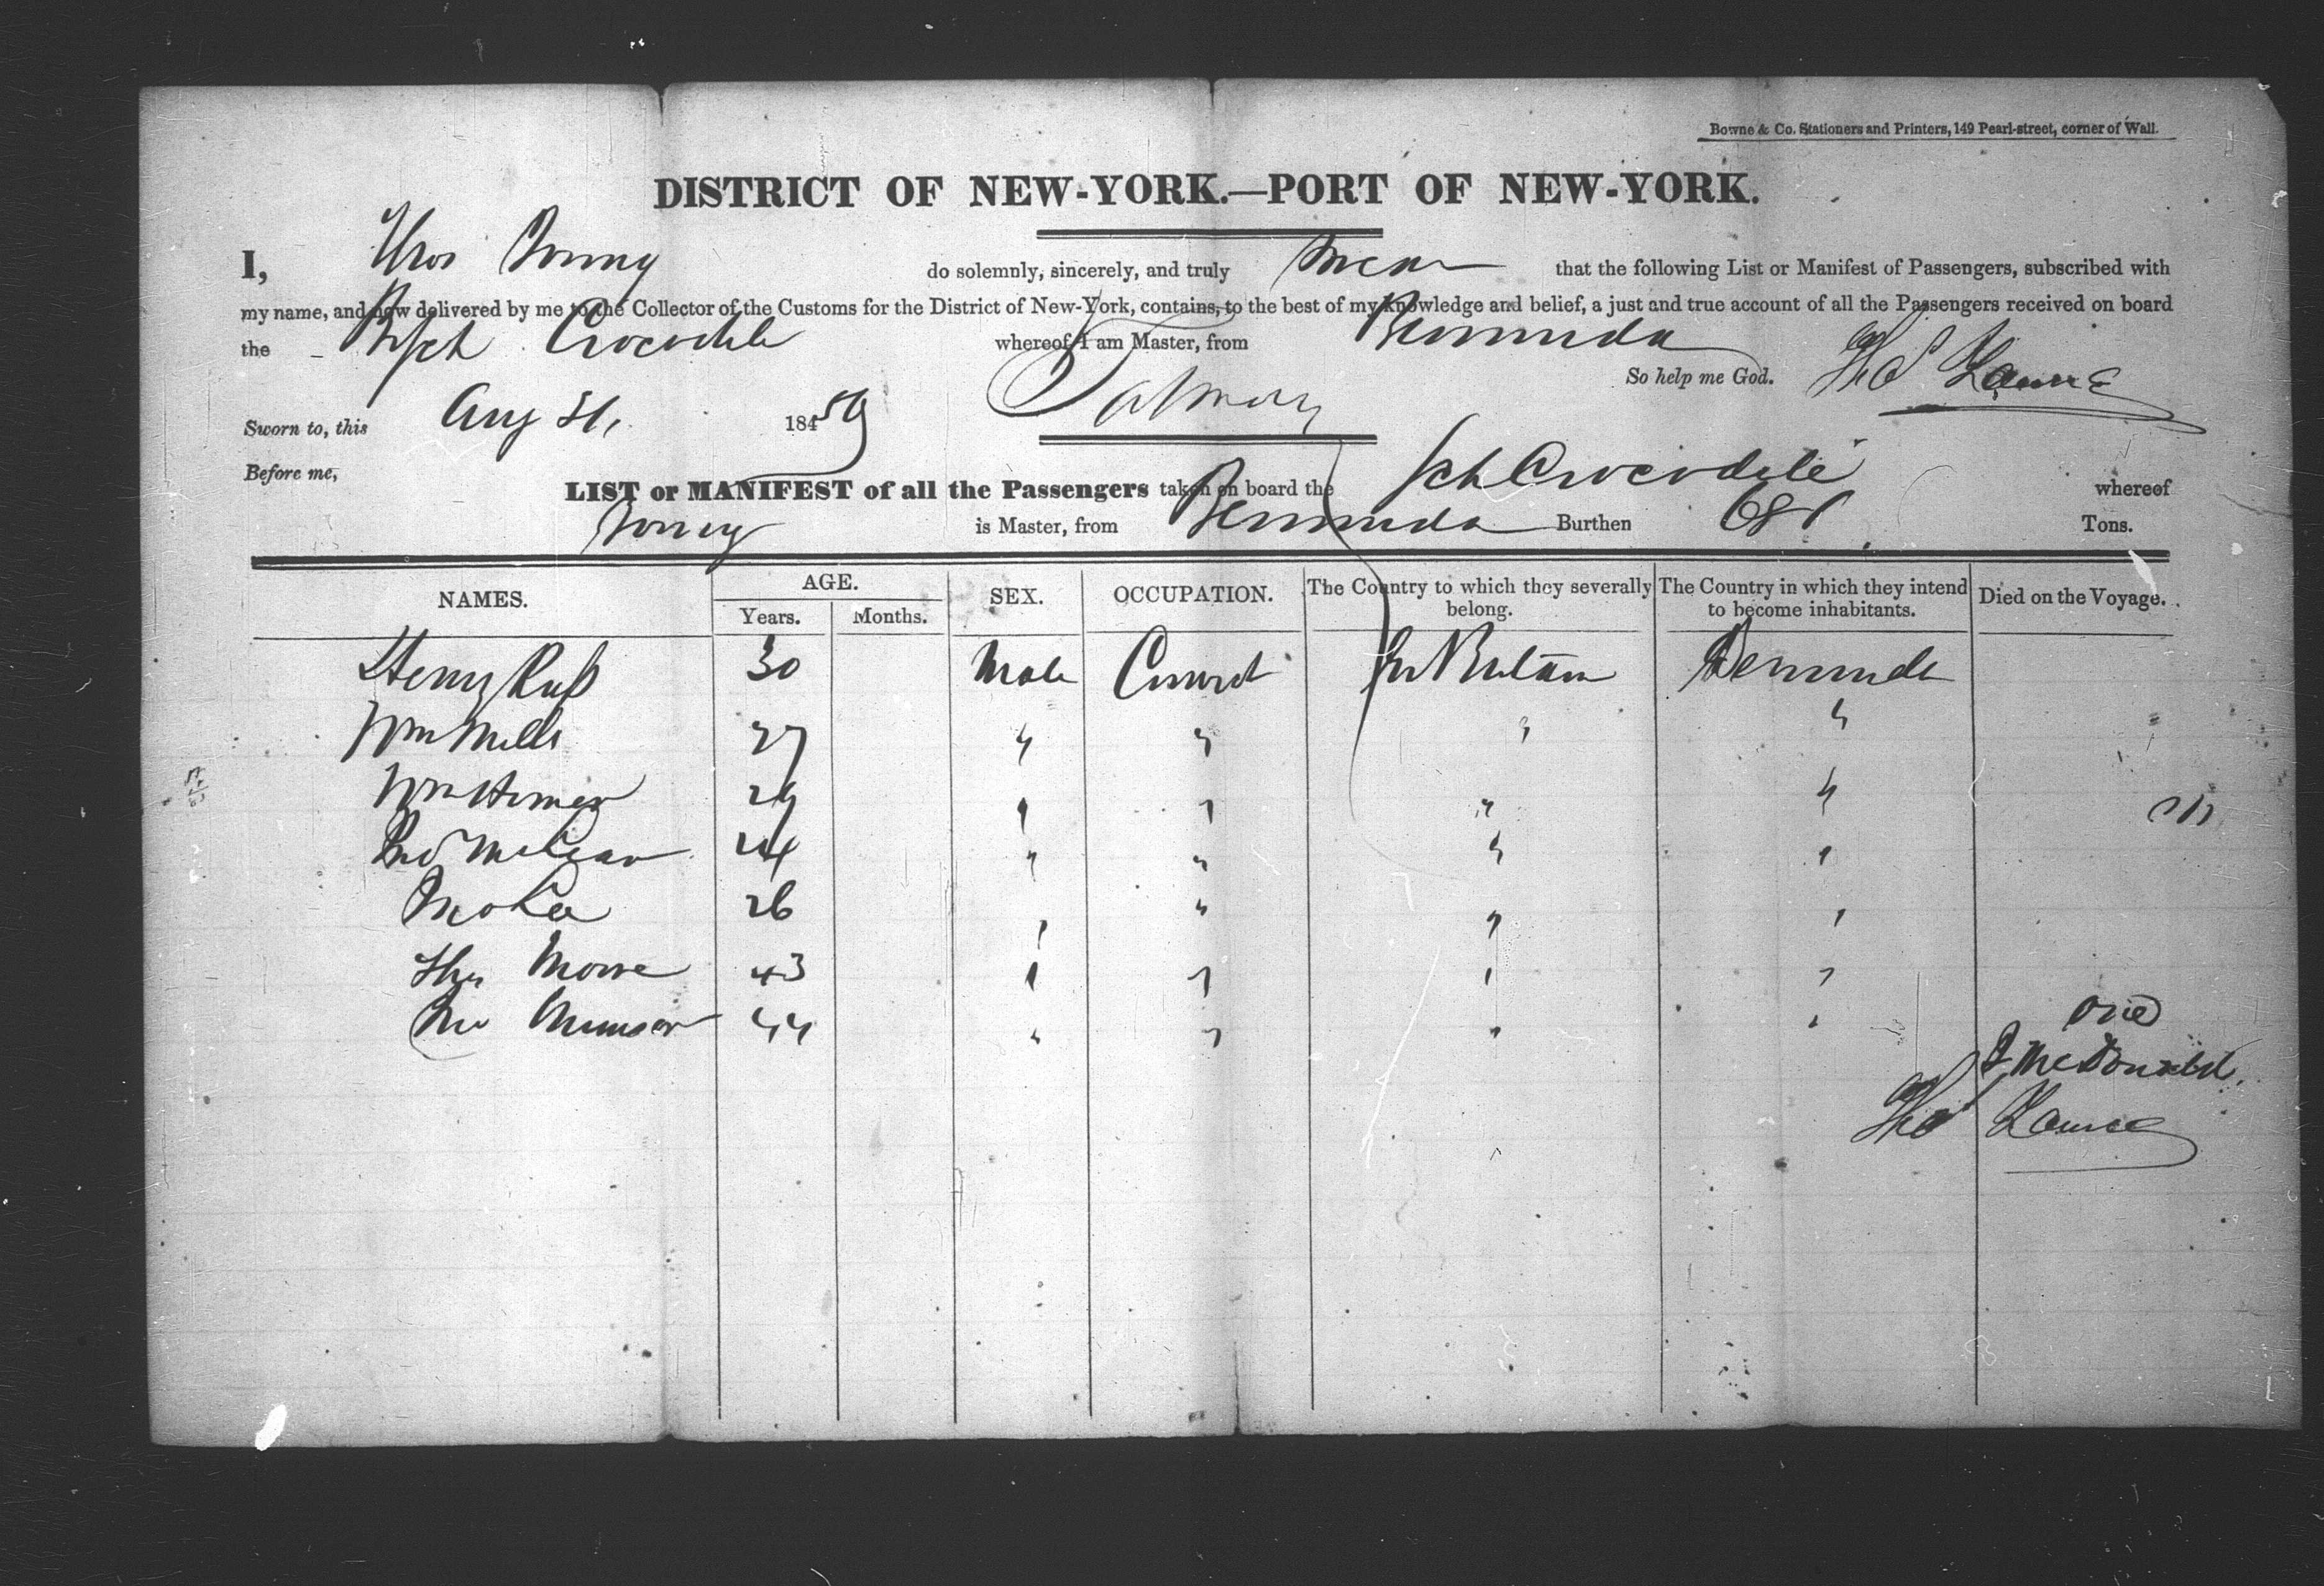 Bowne & Co. Stationers and Printers, 149 Pearl-street, corner of Wall.
DISTRICT OF NEW-YORK.—PORT OF NEW-YORK.
I, Thos Young do solemnly, sincerely, and truly swear that the following List or Manifest of Passengers, subscribed with
my name, and now delivered by me to the Collector of the Customs for the District of New-York, contains, to the best of my knowledge and belief, a just and true account of all the Passengers received on board
the Br Sch Crocodile whereof I am Master, from Bermuda
So help me God. Thos
Sworn to, this Aug 31, 184 59
Before me,
LIST or MANIFEST of all the Passengers taken on board the Sch Crocodile whereof
Young is Master, from Bermuda Burthen 68 Tons.
NAMES. AGE. SEX. OCCUPATION. The Country to which they severally belong. The Country in which they intend to become inhabitants. Died on the Voyage.
Years. Months.
Henry Russ 30 Male Convict Gr Britain Bermuda
Wm Mills 27 " " " "
Wm 29 " " " "
Jno McLean 24 " " " "
Jno Lee 26 " " " "
Thos Moore 43 " " " "
Jno Munson 44 " " " "
one
J McDonald.
Thos